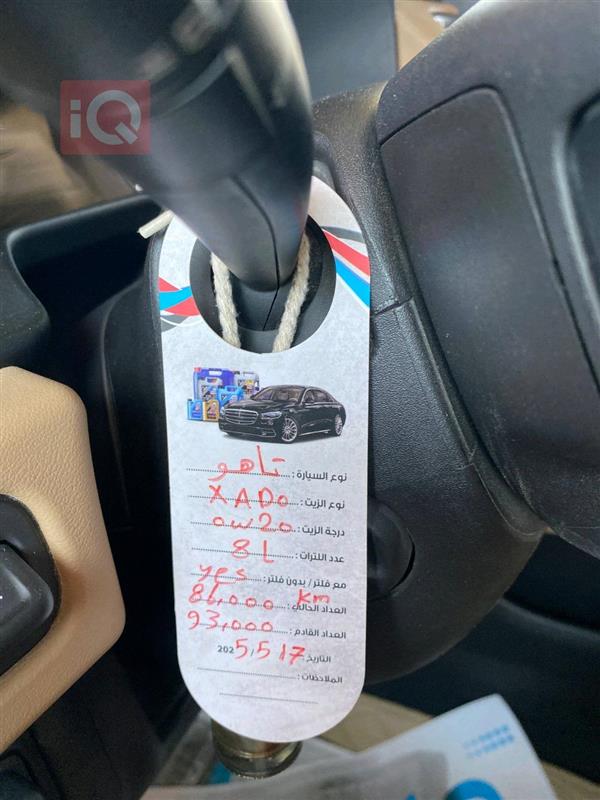 iQ
نوع السيارة : تاهو
نوع الزيت : XADO
درجة الزيت : 0W20
عدد اللترات : 8L
مع فلتر / بدون فلتر : yes
العداد الحالي : 86,000 km
العداد القادم : 93,000
التاريخ : 2025,5,17
الملاحظات :